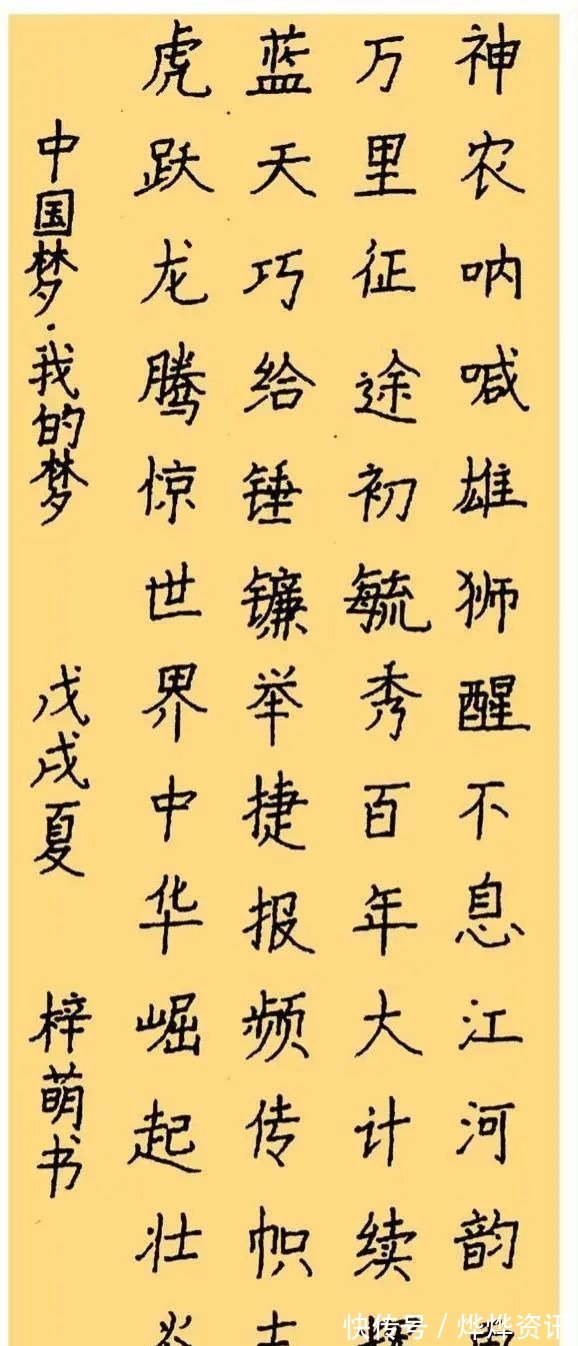 神农呐喊雄狮醒不息江河韵
万里征途初毓秀百年大计续
蓝天巧给锤镰举捷报频传帜
虎跃龙腾惊世界中华崛起壮
中国梦·我的梦 戊戌夏 梓萌书
快传号 / 烨烨资讯